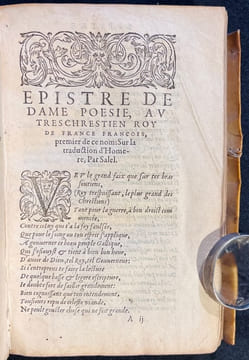 EPISTRE DE
DAME POESIE, AV
TRESCHRESTIEN ROY
DE FRANCE FRANCOIS,
premier de ce nom: Sur la
traduction d'Home-
re, Par Salel.
VEV le grand faix que sur tes bras
soutiens,
(Roy trespuissant, le plus grand des
Chrestiens)
Tant pour la guerre, à bon droict com-
mencée,
Contre celuy qui t'a la foy faulsée,
Que pour le soing ou ton esprit s'applique,
A gouuerner ce beau peuple Gallique,
Qui s'esiouyst & tient à bien bon heur,
D'auoir de Dieu, tel Roy, tel Gouuerneur:
Si i'entreprens te faire la lecture
De quelque basse & legere escripture,
Ie doubte fort de faillir grandement:
Bien cognoissant que ton entendement,
Tousiours repeu de celeste viande,
Ne peult gouster chose qui ne soit grande.
A ij